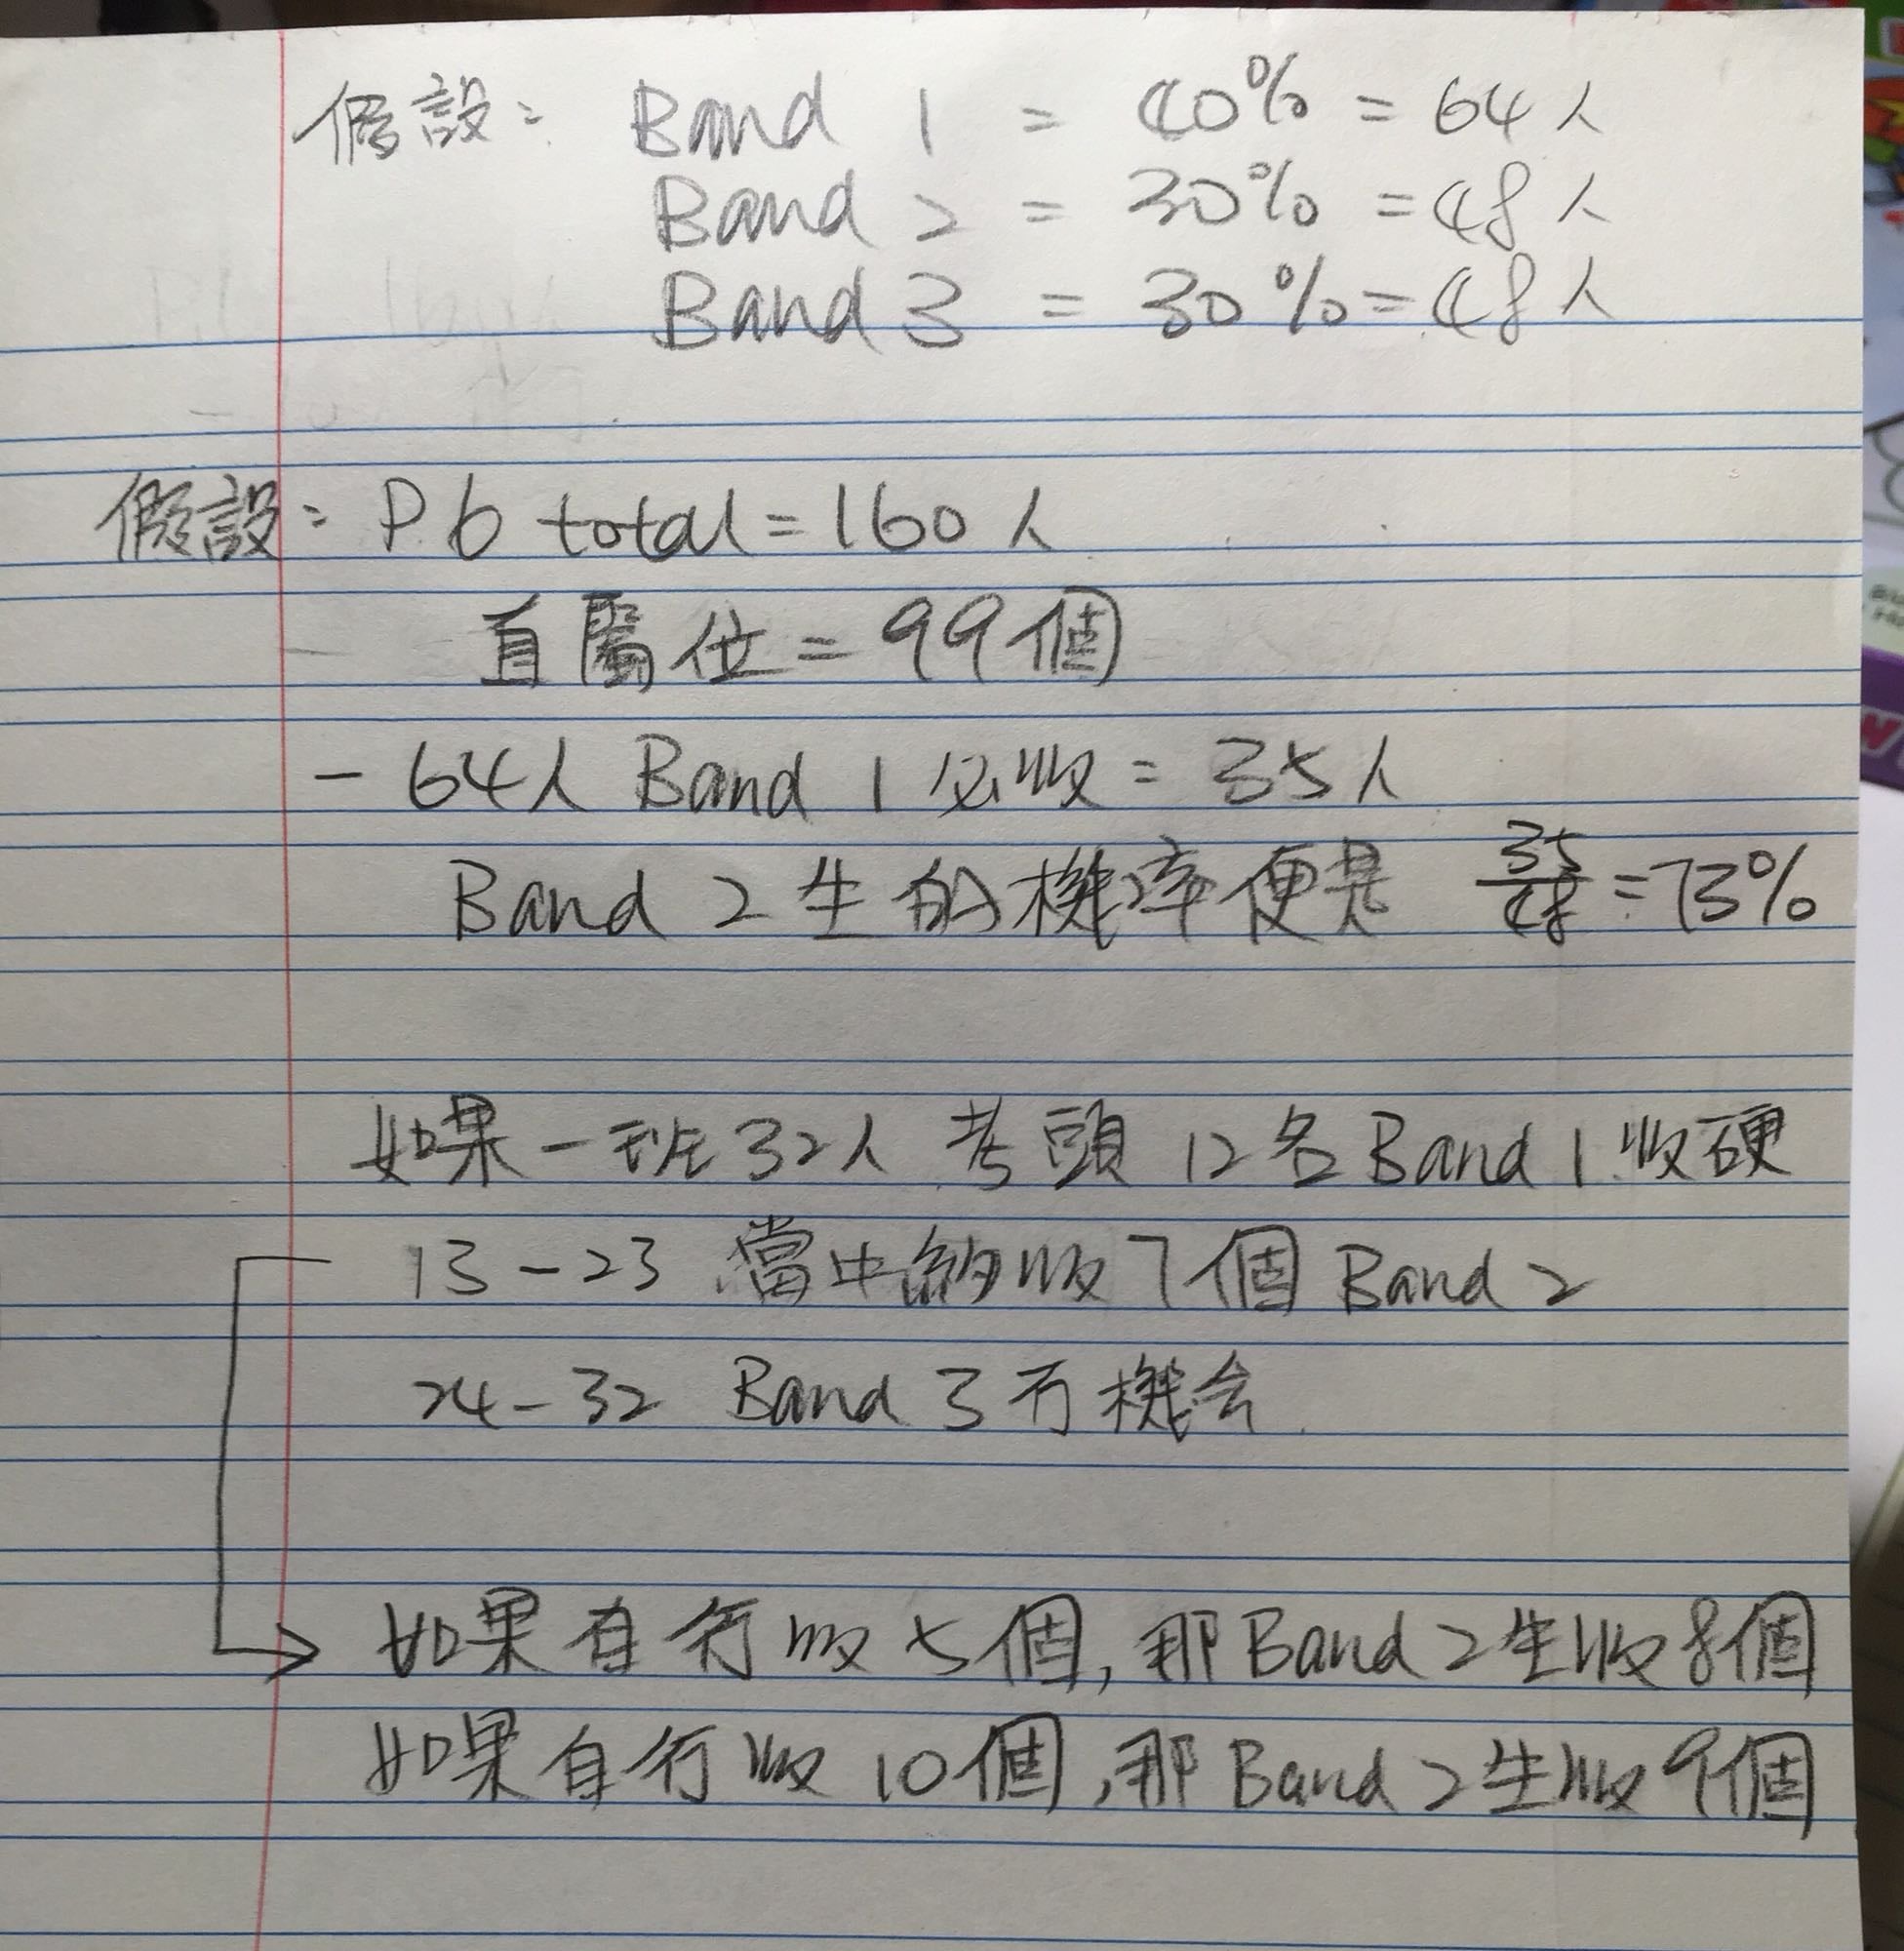 假設: Band 1 = 40% = 64人
Band 2 = 30% = 48人
Band 3 = 30% = 48人
假設: P.6 total = 160人
直屬位 = 99個
- 64人 Band 1 必收 = 35人
Band 2 生的機率便是 35/48 = 73%
如果一班32人 考頭 12名 Band 1 收硬
13-23 當中約收7個 Band 2
24-32 Band 3 冇機会.
如果自行收5個, 那Band 2生收8個
如果自行收10個, 那Band 2生收9個